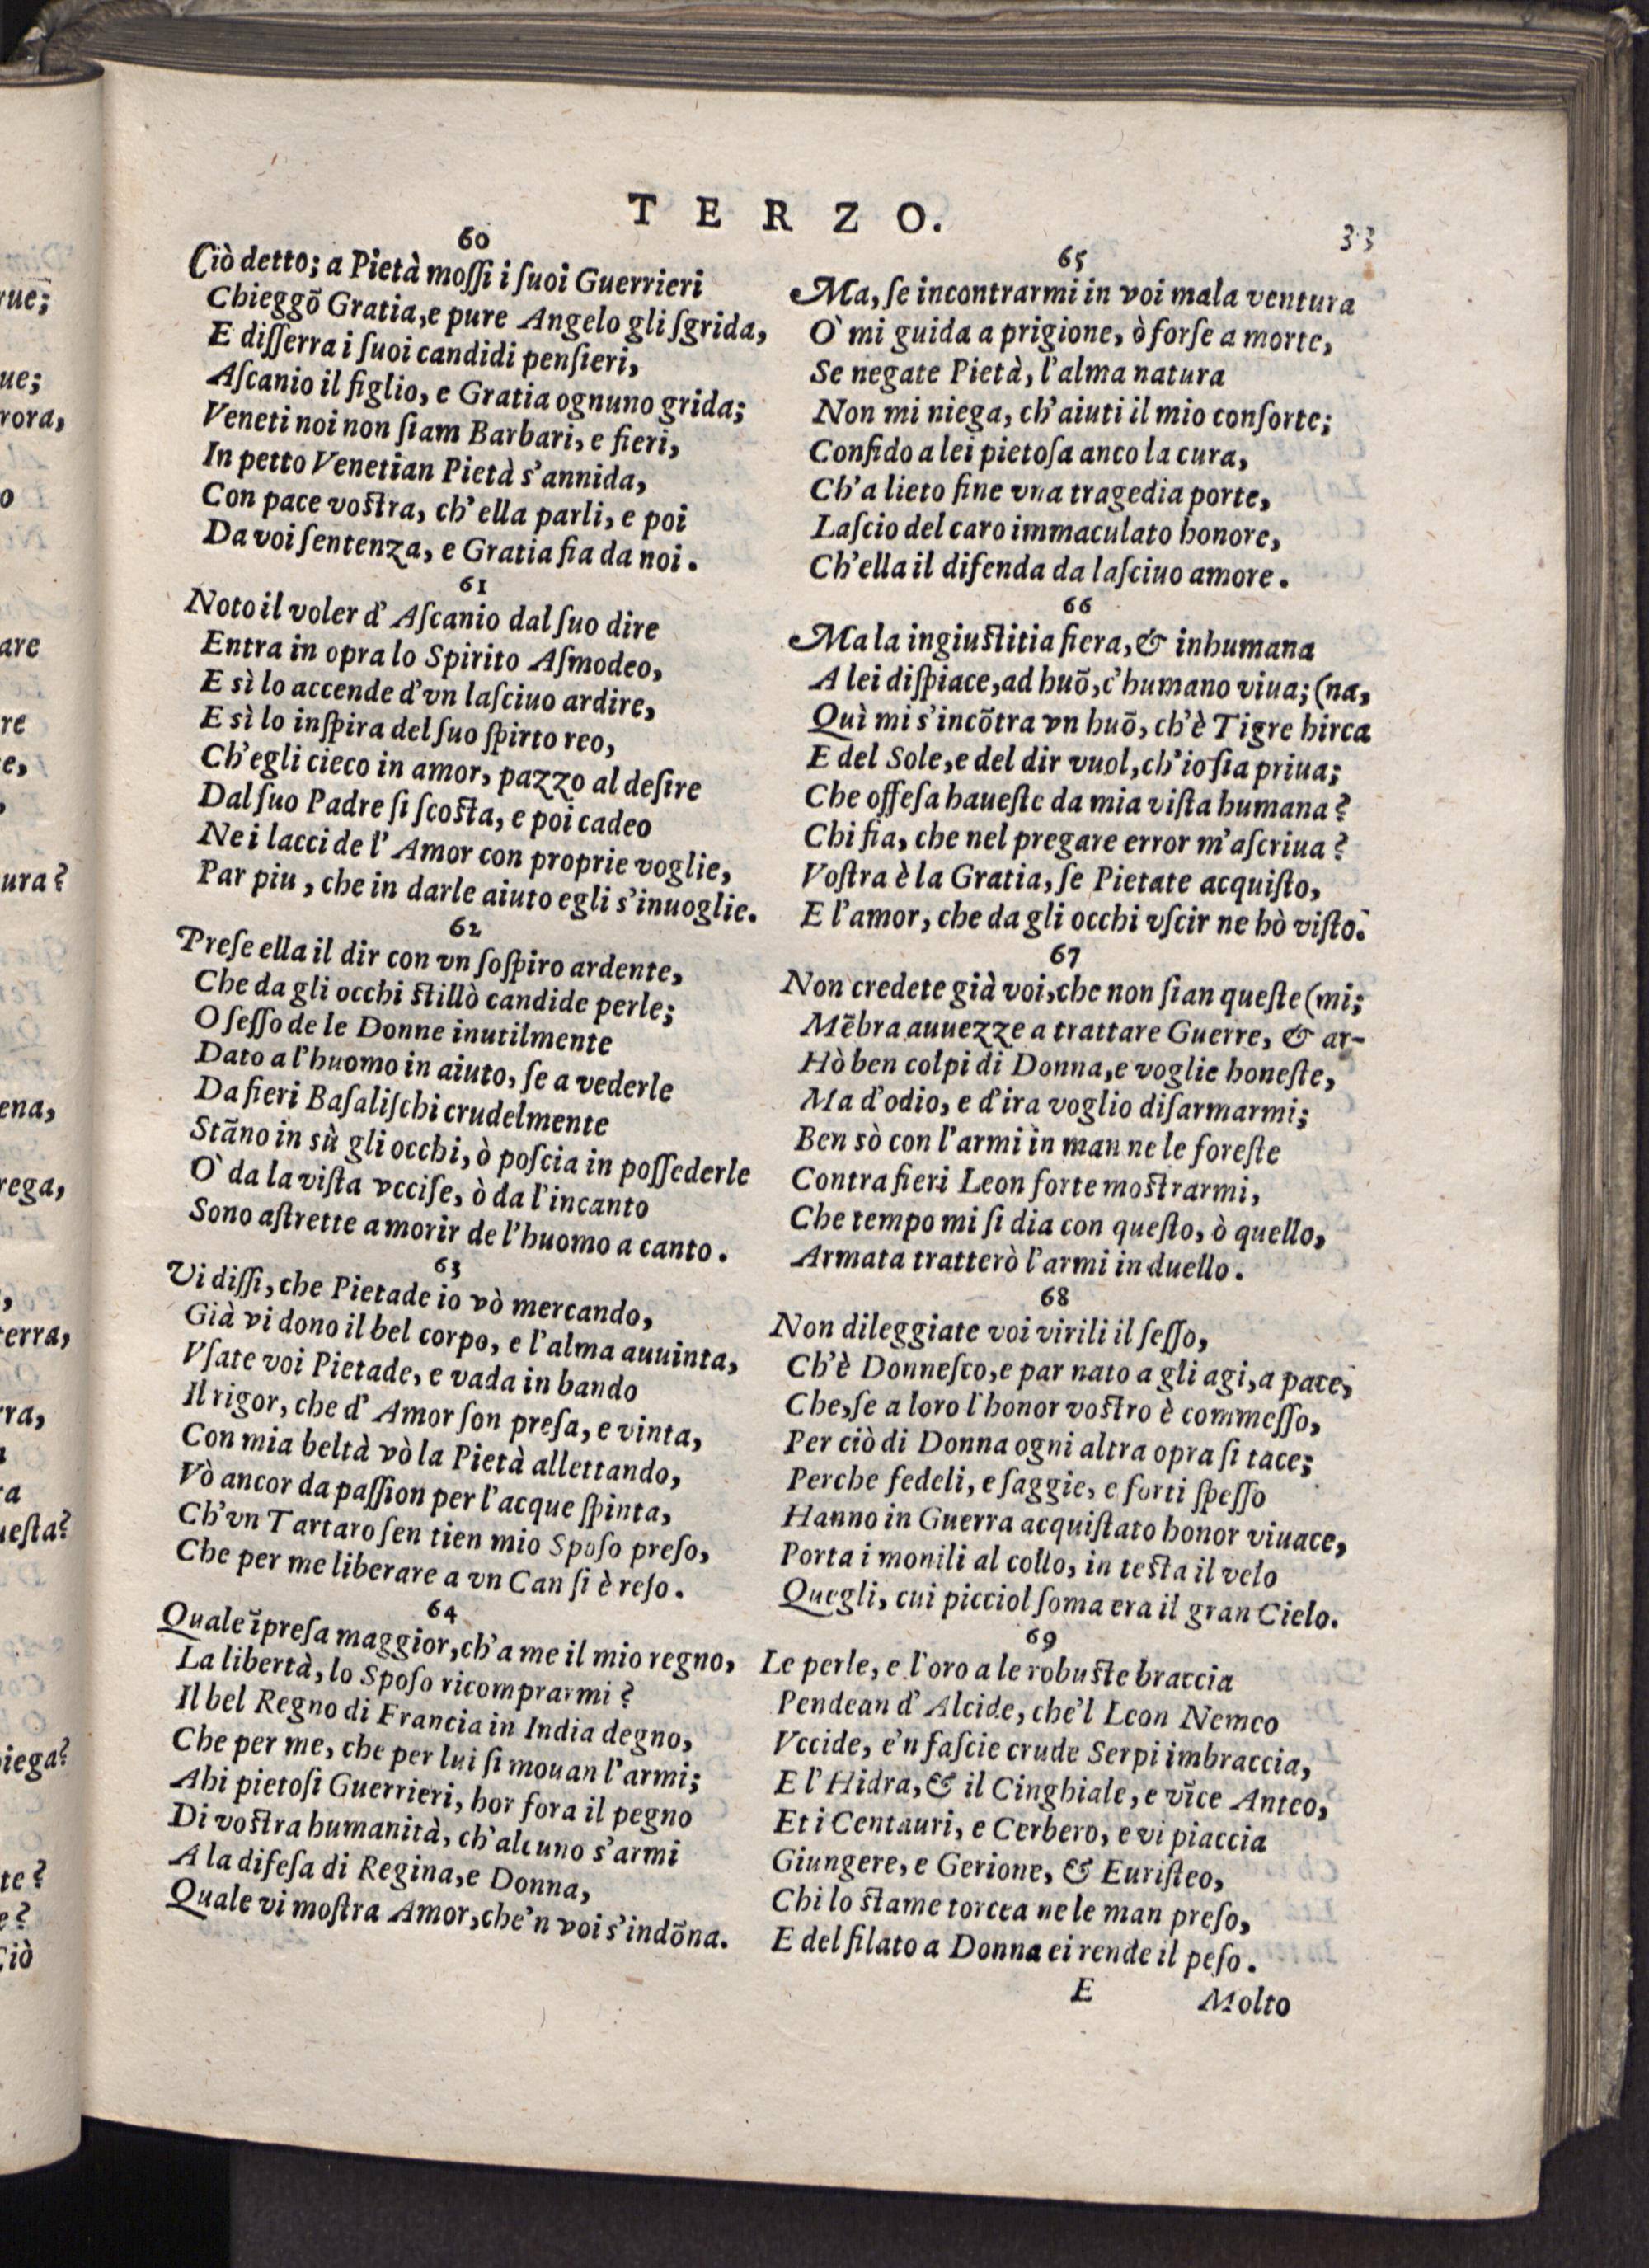 TERZO.
33
60
Ciò detto; a Pietà moſſi i ſuoi Guerrieri
Chieggõ Gratia, e pure Angelo gli ſgrida,
E diſſerra i ſuoi candidi penſieri,
Aſcanio il figlio, e Gratia ognuno grida;
Veneti noi non ſiam Barbari, e fieri,
In petto Venetian Pietà s'annida,
Con pace voſtra, ch'ella parli, e poi
Da voi ſentenza, e Gratia fia da noi.
61
Noto il voler d'Aſcanio dal ſuo dire
Entra in opra lo Spirito Aſmodeo,
E sì lo accende d'vn laſciuo ardire,
E sì lo inſpira del ſuo ſpirto reo,
Ch'egli cieco in amor, pazzo al deſire
Dal ſuo Padre ſi ſcoſta, e poi cadeo
Ne i lacci de l'Amor con proprie voglie,
Par piu, che in darle aiuto egli s'inuoglie.
62
Preſe ella il dir con vn ſoſpiro ardente,
Che da gli occhi ſtillò candide perle;
O ſeſſo de le Donne inutilmente
Dato a l'huomo in aiuto, ſe a vederle
Da fieri Baſaliſchi crudelmente
Stãno in sù gli occhi, ò poſcia in poſſederle
Ò da la viſta vcciſe, ò da l'incanto
Sono aſtrette a morir de l'huomo a canto.
63
Vi diſſi, che Pietade io vò mercando,
Già vi dono il bel corpo, e l'alma auuinta,
Vſate voi Pietade, e vada in bando
Il rigor, che d'Amor ſon preſa, e vinta,
Con mia beltà vò la Pietà allettando,
Vò ancor da paſſion per l'acque ſpinta,
Ch'vn Tartaro ſen tien mio Spoſo preſo,
Che per me liberare a vn Can ſi è reſo.
64
Quale ĩpreſa maggior, ch'a me il mio regno,
La libertà, lo Spoſo ricomprarmi?
Il bel Regno di Francia in India degno,
Che per me, che per lui ſi mouan l'armi;
Ahi pietoſi Guerrieri, hor fora il pegno
Di voſtra humanità, ch'alcuno s'armi
A la difeſa di Regina, e Donna,
Quale vi moſtra Amor, che'n voi s'indõna.
65
Ma, ſe incontrarmi in voi mala ventura
Ò mi guida a prigione, ò forſe a morte,
Se negate Pietà, l'alma natura
Non mi niega, ch'aiuti il mio conſorte;
Confido a lei pietoſa anco la cura,
Ch'a lieto fine vna tragedia porte,
Laſcio del caro immaculato honore,
Ch'ella il difenda da laſciuo amore.
66
Ma la ingiuſtitia fiera, & inhumana
A lei diſpiace, ad huõ, c'humano viua; (na,
Quì mi s'incõtra vn huõ, ch'è Tigre hirca
E del Sole, e del dir vuol, ch'io ſia priua;
Che offeſa haueſte da mia viſta humana?
Chi fia, che nel pregare error m'aſcriua?
Voſtra è la Gratia, ſe Pietate acquiſto,
E l'amor, che da gli occhi vſcir ne hò viſto.
67
Non credete già voi, che non ſian queſte (mi;
Mẽbra auuezze a trattare Guerre, & ar-
Hò ben colpi di Donna, e voglie honeſte,
Ma d'odio, e d'ira voglio diſarmarmi;
Ben sò con l'armi in man ne le foreſte
Contra fieri Leon forte moſtrarmi,
Che tempo mi ſi dia con queſto, ò quello,
Armata tratterò l'armi in duello.
68
Non dileggiate voi virili il ſeſſo,
Ch'è Donneſco, e par nato a gli agi, a pace,
Che, ſe a loro l'honor voſtro è commeſſo,
Per ciò di Donna ogni altra opra ſi tace;
Perche fedeli, e ſaggie, e forti ſpeſſo
Hanno in Guerra acquiſtato honor viuace,
Porta i monili al collo, in teſta il velo
Quegli, cui picciol ſoma era il gran Cielo.
69
Le perle, e l'oro a le robuſte braccia
Pendean d'Alcide, che'l Leon Nemeo
Vccide, e'n faſcie crude Serpi imbraccia,
E l'Hidra, & il Cinghiale, e vĩce Anteo,
Et i Centauri, e Cerbero, e vi piaccia
Giungere, e Gerione, & Euriſteo,
Chi lo ſtame torcea ne le man preſo,
E del filato a Donna ei rende il peſo.
E
Molto